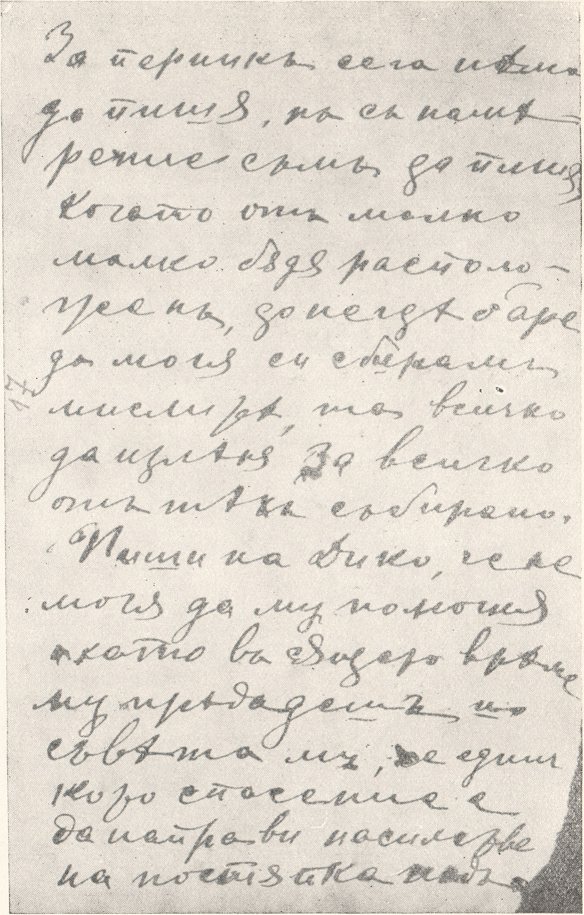 За перникъ сега нѣма
да пишя, нъ съ намѣ-
рение съмъ да пишя
когато отъ малко
малко бѫдя располо-
жень, донегдѣ баре
да могя си сбирамъ
мислитѣ, та всичко
да излѣя за всичко
отъ тѣхъ събирано.
Пиши на Дико, че не
могя да му помогня
като въ сѫщото врѣме
му прѣдадешъ и
съвѣта ми, че единъ
кого спасение е
да направи насилстве
на постѫпка надъ
17